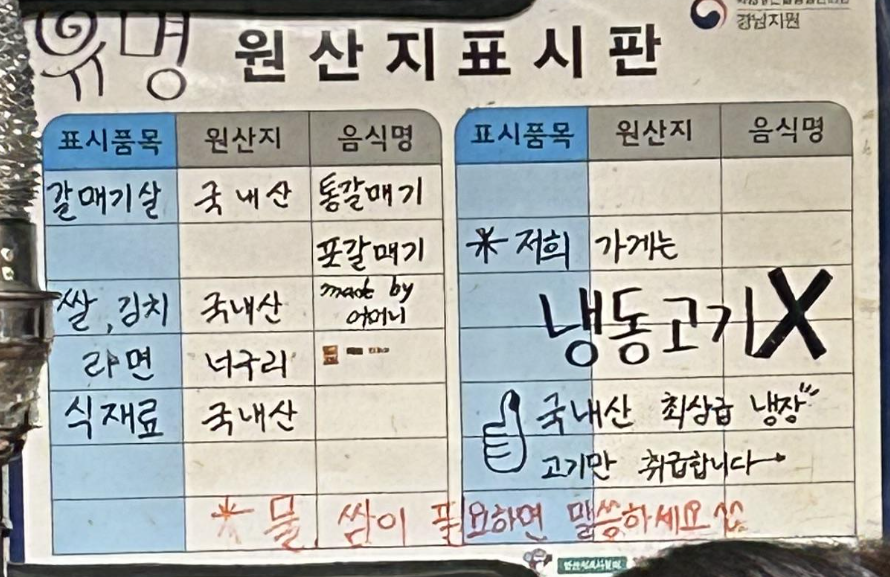 유명 원산지표시판
강남지원
표시품목 원산지 음식명
갈매기살 국내산 통갈매기
포갈매기
쌀, 김치 국내산 made by 어머니
라면 너구리
식재료 국내산
표시품목 원산지 음식명
* 저희 가게는
냉동고기 X
국내산 최상급 냉장
고기만 취급합니다
* 물, 쌈이 필요하면 말씀하세요